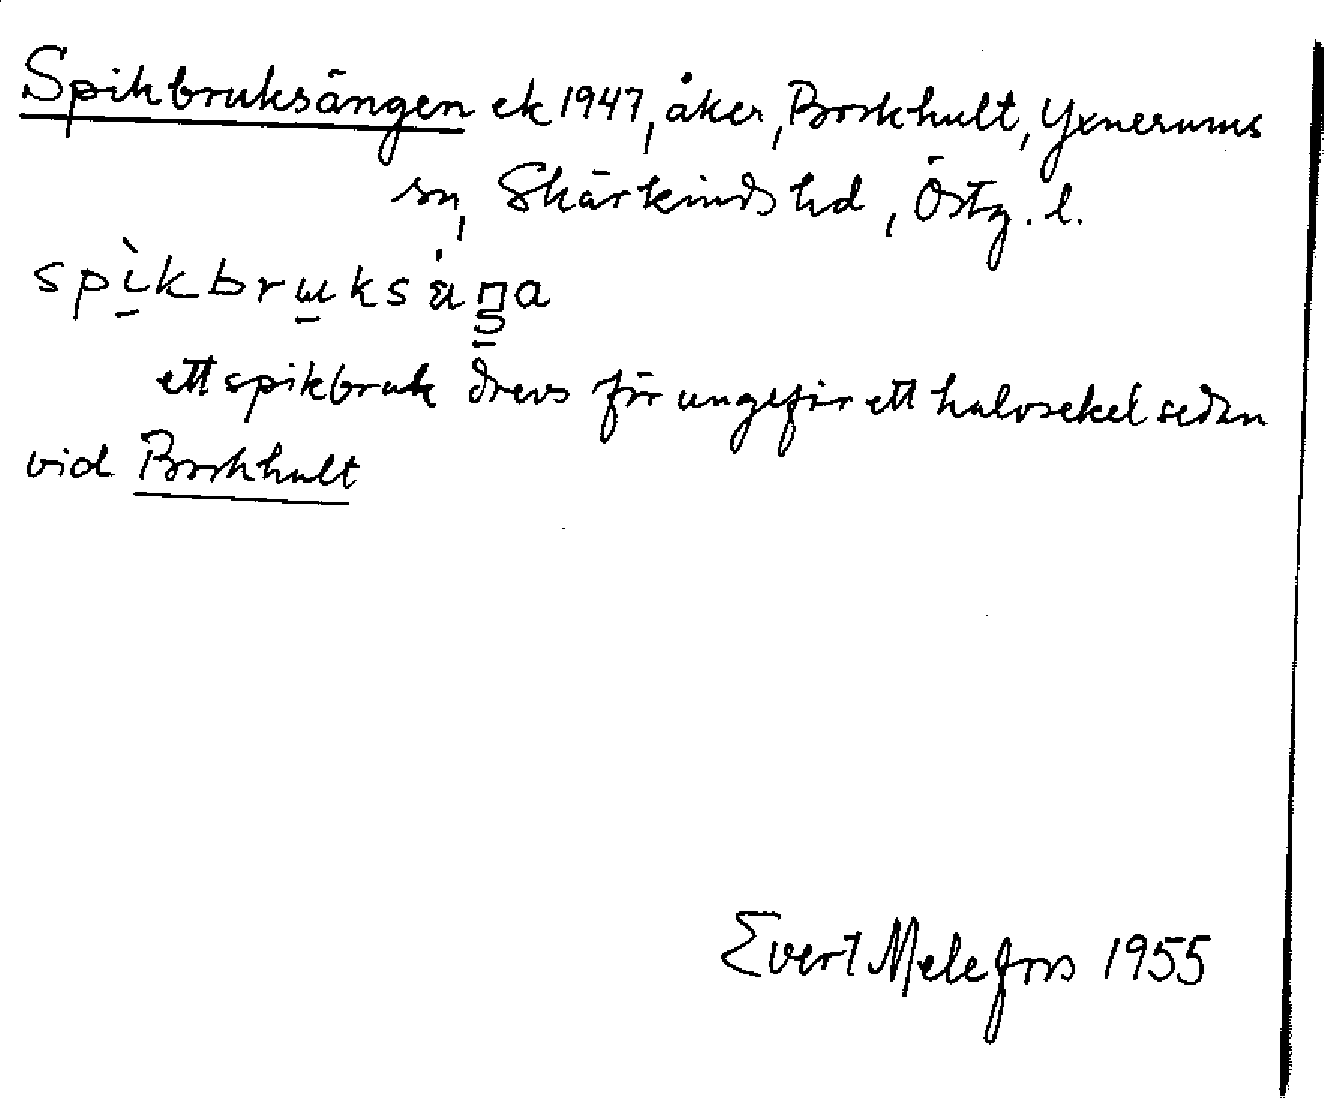 Spikbruksängen ek 1947, åker, Borkhult, Yxnerums
sn, Skärkinds hd, Östg. l.
ett spikbruk drevs för ungefär ett halvsekel sedan
vid Borkhult
Evert Melefors 1955